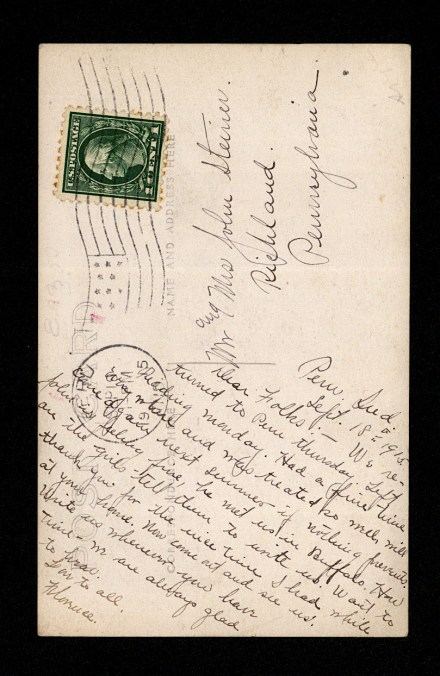 U.S.POSTAGE
1 CENT 1
PERU
POST CARD
NAME AND ADDRESS HERE
Mr and Mrs John Steiner.
Richland.
Pennsylvania.
Peru, Ind.
Sept. 18th 1915
Dear Folks:- We re-
turned to Peru Thursday Sept
Reading Monday. Had a fine time
and was treated so well, will
come again next summer if nothing prevents.
John is feeling fine, he met us in Buffalo. How
are the girls- tell them to write us. Want to
thank you for the nice time I had while
at your home. Now come out and see us.
Write us whenever you have
time- We are always glad
to hear.
Love to all.
Florence.